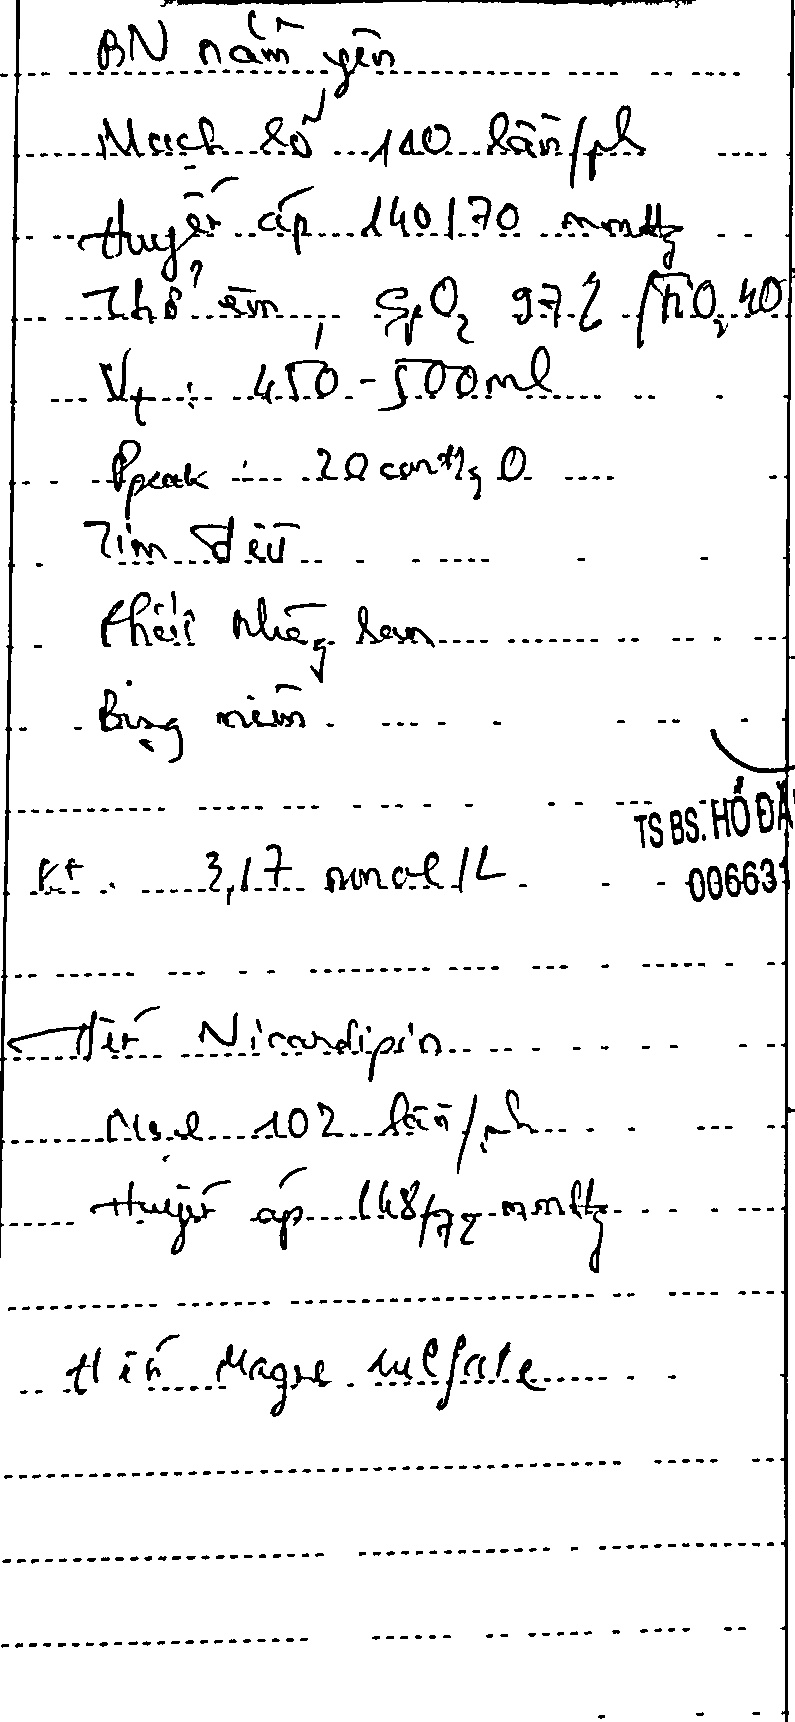 BN nằm yên
Mạch rõ 110 lần/ph
Huyết áp 140/70 mmHg
Thở êm SpO₂ 97% FiO₂ 40
Vt : 450 - 500ml
Ppeak : 20 cmH₂O
Tim đều
Phổi không ran
Bụng mềm
TS BS. HỒ ĐĂ
006631
K+ : 3,17 mmol/L
Hết Nicardipin
Mạch 102 lần/ph
Huyết áp 148/72 mmHg
Hết Magne sulfate